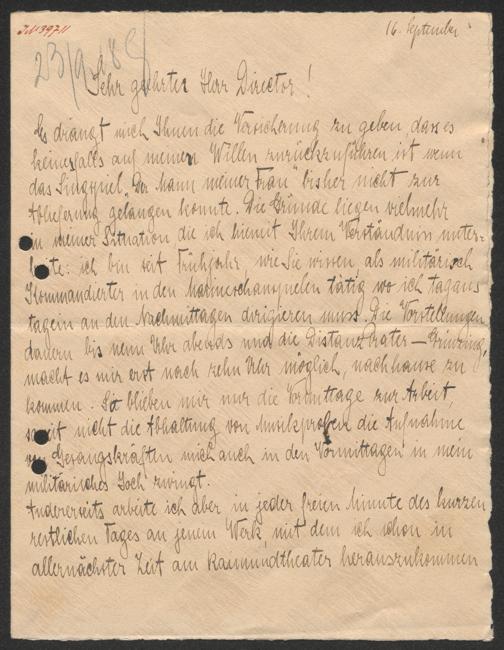 16. September
23/9 18
Sehr geehrter Herr Director!
Es drängt mich Ihnen die Versicherung zu geben, dass es
keinesfalls auf meinen Willen zurückzuführen ist wenn
das Singspiel „Der Mann meiner Frau" bisher nicht zur
Ablieferung gelangen konnte. Die Gründe liegen vielmehr
in meiner Situation die ich hiemit Ihrem Verständnis unter-
breite: ich bin seit Frühjahr wie Sie wissen als militärisch
Kommandierter in den Marineschauspielen tätig wo ich tagaus
tagein an den Nachmittagen dirigieren muss. Die Vorstellungen
dauern bis neun Uhr abends und die Distanz Prater – Grinzing,
macht es mir erst nach zehn Uhr möglich, nachhause zu
kommen. So blieben mir nur die Vormittage zur Arbeit,
soweit nicht die Abhaltung von Musikproben die Aufnahme
von Gesangskräften mich auch in den Vormittagen in mein
militärisches Joch zwingt.
Andererseits arbeite ich aber in jeder freien Minute des kurzen
restlichen Tages an jenem Werk, mit dem ich schon in
allernächster Zeit am Raimundtheater herauszukommen